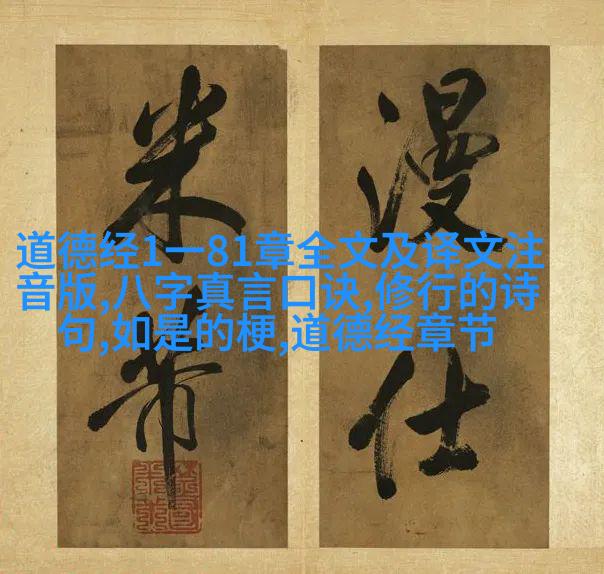 漫仕
米芾
道德经1一81章全文及译文注
音版,八字真言口诀,修行的诗
句,如是的梗,道德经章节